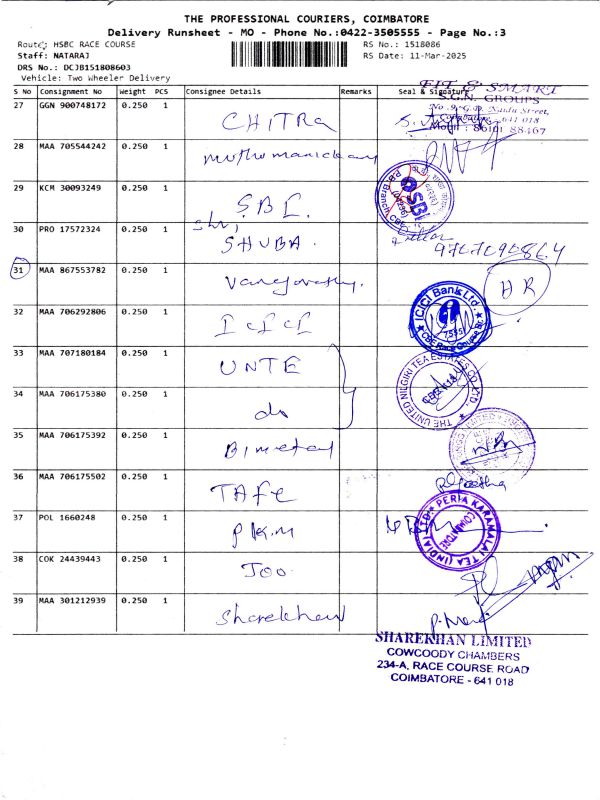 THE PROFESSIONAL COURIERS, COIMBATORE
Delivery Runsheet - MO - Phone No.:0422-3505555 - Page No.:3
Route: HSBC RACE COURSE RS No.: 1518086
Staff: NATARAJ RS Date: 11-Mar-2025
DRS No.: DCJB151808603
Vehicle: Two Wheeler Delivery
S No Consignment No Weight PCS Consignee Details Remarks Seal & Signature
FIT & SMART
S.G.N. GROUPS
27 GGN 900748172 0.250 1 CHITRA
No.9, G.D. Naidu Street,
Coimbatore - 641 018
Mobil : 86101 88467
28 MAA 705544242 0.250 1 muthumanickam
29 KCM 30093249 0.250 1 SBI
SBI
30 PRO 17572324 0.250 1 SHUBA
31 MAA 867553782 0.250 1
HR
ICICI Bank Ltd
CBE Race Course Br
32 MAA 706292806 0.250 1 ICICI
33 MAA 707180184 0.250 1 UNTE
THE UNITED NILGIRI TEA ESTATES CO. LTD.
34 MAA 706175380 0.250 1 do
35 MAA 706175392 0.250 1 Bimetal
36 MAA 706175502 0.250 1 TAFE
37 POL 1660248 0.250 1 PKM
PERIA KARAMALAI TEA (INDIA) LTD
COIMBATORE
38 COK 24439443 0.250 1 Joo
39 MAA 301212939 0.250 1 Sharekhan
SHAREKHAN LIMITED
COWCOODY CHAMBERS
234-A, RACE COURSE ROAD
COIMBATORE - 641 018